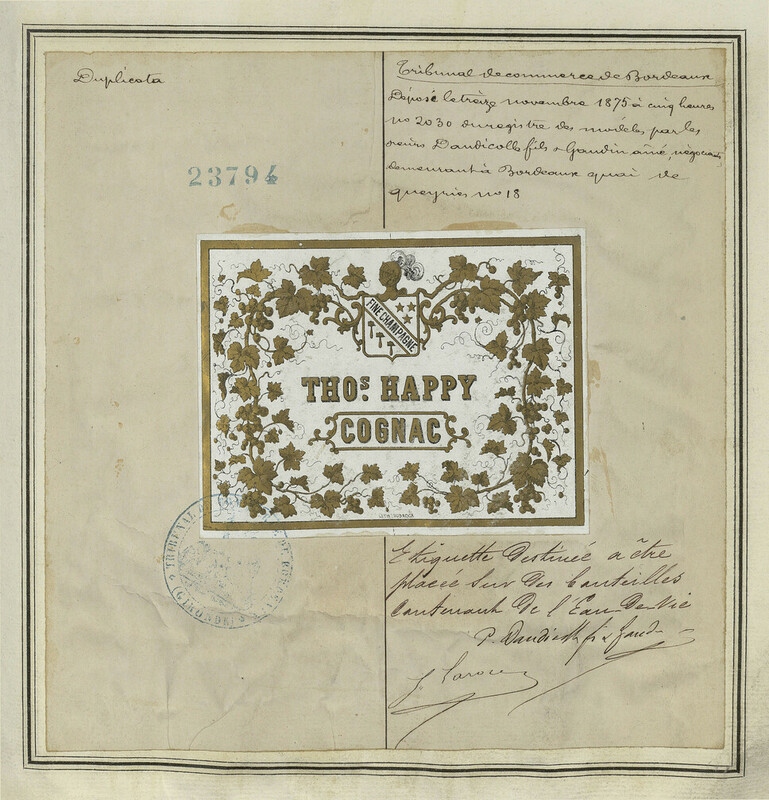 Duplicata
23794
Tribunal de commerce de Bordeaux
Déposé le treize novembre 1875 à cinq heures
no 2030 du registre des modèles par les
sieurs Dandicolle fils & Gaudin aîné, négociants,
demeurant à Bordeaux quai de
queyries no 18
FINE CHAMPAGNE
THOS. HAPPY
COGNAC
TRIBUNAL DE BORDEAUX
(GIRONDE)
Etiquette Destinée a être
placée sur des bouteilles
contenant De l'Eau De Vie
P. Dandicolle fi & Gaud